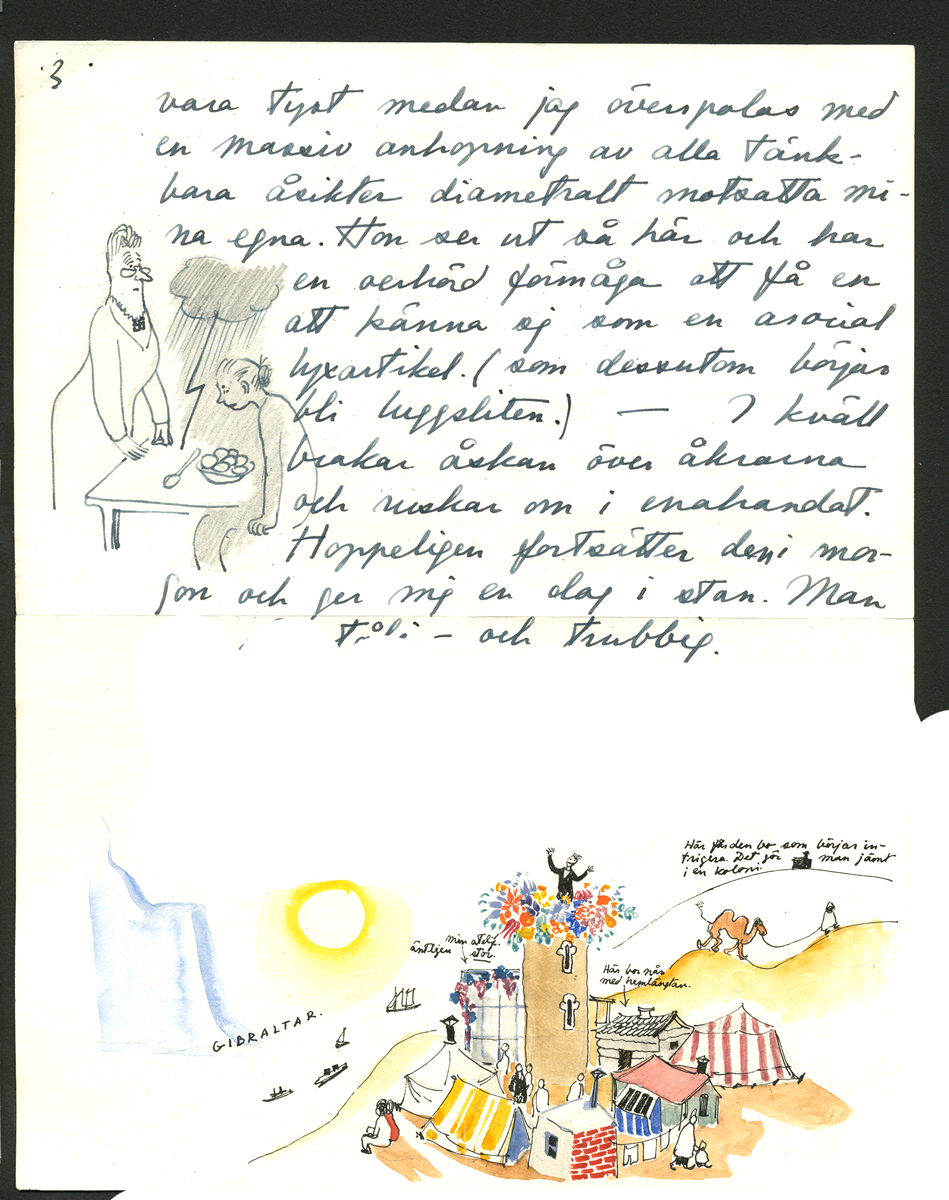 3
vara tyst medan jag överspolas med
en massiv anhopning av alla tänk-
bara åsikter diametralt motsatta mi-
na egna. Hon ser ut så här och har
en oerhörd förmåga att få en
att känna sig som en asocial
lyxartikel. (som dessutom börjar
bli luggsliten.) — I kväll
brakar åskan över åkrarna
och ruskar om i enahandat.
Hoppeligen fortsätter den i mor-
gon och ger mig en dag i stan. Man
– och trubbig.
Här får den bo som börjar in-
trigera. Det gör man jämt
i en koloni.
min ateljé.
äntligen stor.
Här bor nån
med hemlängtan.
GIBRALTAR.